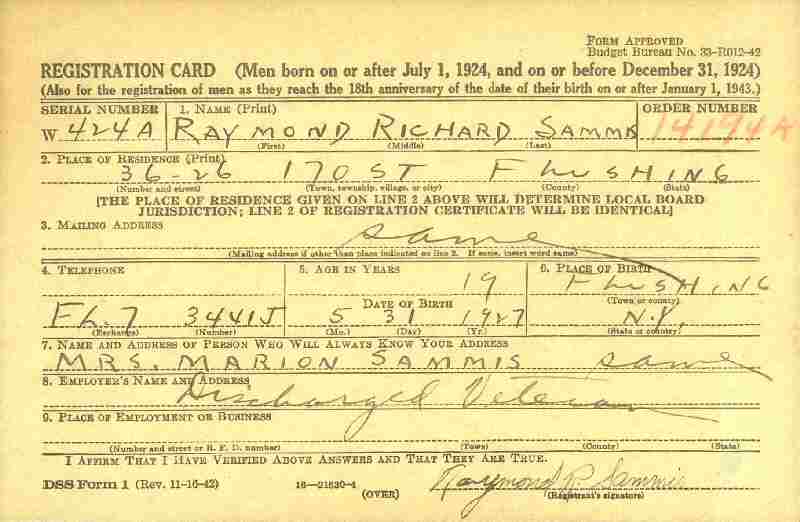 FORM APPROVED
Budget Bureau No. 33-R012-42
REGISTRATION CARD (Men born on or after July 1, 1924, and on or before December 31, 1924)
(Also for the registration of men as they reach the 18th anniversary of the date of their birth on or after January 1, 1943.)
SERIAL NUMBER 1. NAME (Print) ORDER NUMBER
W 424A RAYMOND RICHARD SAMMIS 14194A
(First) (Middle) (Last)
2. PLACE OF RESIDENCE (Print)
36-26 170 ST FLUSHING
(Number and street) (Town, township, village, or city) (County) (State)
[THE PLACE OF RESIDENCE GIVEN ON LINE 2 ABOVE WILL DETERMINE LOCAL BOARD
JURISDICTION; LINE 2 OF REGISTRATION CERTIFICATE WILL BE IDENTICAL]
3. MAILING ADDRESS
same
(Mailing address if other than place indicated on line 2. If same, insert word same)
4. TELEPHONE 5. AGE IN YEARS 6. PLACE OF BIRTH
19 FLUSHING
DATE OF BIRTH (Town or county)
FL. 7 3441J 5 31 1927 N.Y.
(Exchange) (Number) (Mo.) (Day) (Yr.) (State or country)
7. NAME AND ADDRESS OF PERSON WHO WILL ALWAYS KNOW YOUR ADDRESS
MRS. MARION SAMMIS same
8. EMPLOYER'S NAME AND ADDRESS
Discharged Veteran
9. PLACE OF EMPLOYMENT OR BUSINESS
(Number and street or R. F. D. number) (Town) (County) (State)
I AFFIRM THAT I HAVE VERIFIED ABOVE ANSWERS AND THAT THEY ARE TRUE.
DSS Form 1 (Rev. 11-16-42) 16—21630-4 Raymond R. Sammis
(OVER) (Registrant's signature)